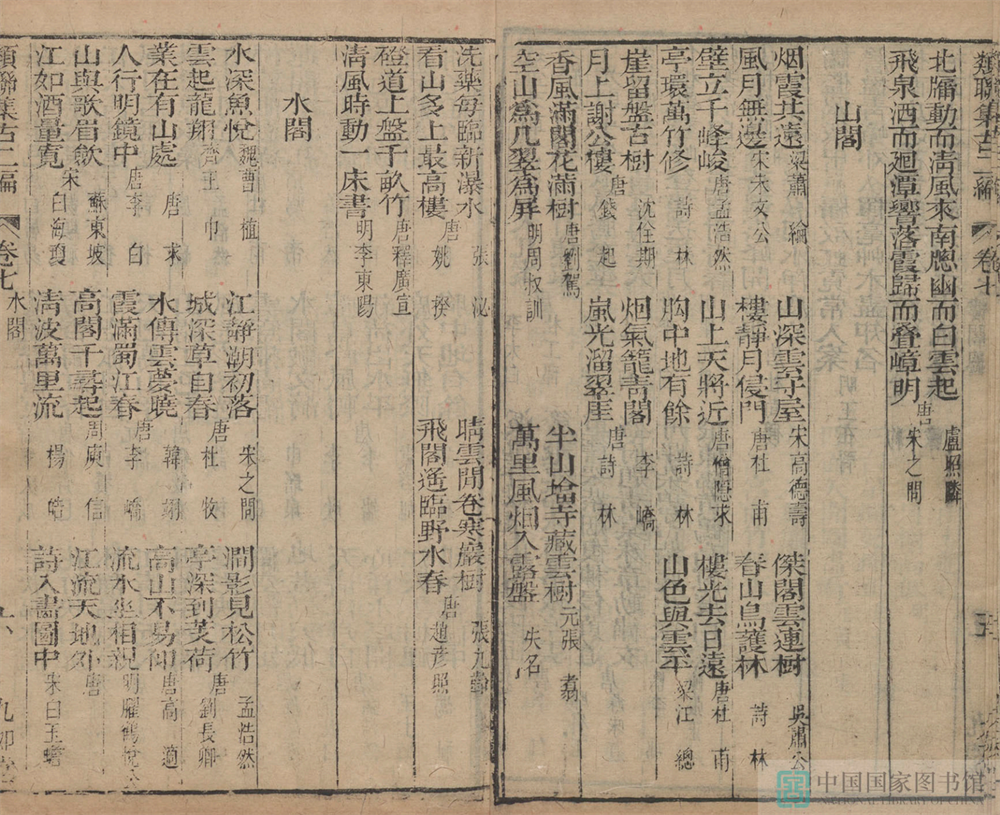 類聯集古二編 卷七
北牖動而清風來南窻幽而白雲起 盧照鄰
飛泉洒而廻潭響落霞歸而疊嶂明 唐 宋之問
山閣
烟霞共遠 梁蕭綸 山深雲守屋 宋高德壽 傑閣雲連樹 吳蕭公
風月無邊 宋朱文公 樓靜月侵門 唐杜甫 春山鳥護林 詩林
壁立千峰峻 唐孟浩然 山上天將近 唐僧隱求 樓光去日遠 唐杜甫
亭環萬竹修 詩林 胸中地有餘 詩林 山色與雲平 梁江總
崖留盤古樹 沈佺期 烟氣籠青閣 李嶠 半山墖寺藏雲樹 元張翥
月上謝公樓 唐錢起 嵐光溜翠崖 唐詩林 萬里風烟入露盤 失名
香風滿閣花滿樹 唐劉駕
空山爲几翠爲屏 明周叔訓
洗藥每臨新瀑水 張泌 晴雲閒卷寒巖樹 張九齡
看山多上最高樓 唐姚揆 飛閣遙臨野水春 唐趙彦照
磴道上盤千畝竹 唐釋廣宣
清風時動一床書 明李東陽
水閣
水深魚悅 魏曹植 江靜湖初落 宋之問 澗影見松竹 孟浩然
雲起龍翔 齊王巾 城深草自春 唐杜牧 亭深到芰荷 唐劉長卿
業在有山處 唐求 水傳雲夢曉 韓翃 高山不易仰 唐高適
人行明鏡中 唐李白 霞滿蜀江春 唐李嶠 流水坐相親
山與歌眉飲 蘇東坡 高閣千尋起 周庾信 江流天地外 唐
江如酒量寬 宋白海瓊 清波萬里流 楊皓 詩入畵圖中 宋白玉蟾
類聯集古二編 卷七 水閣
中国国家图书馆
NATIONAL LIBRARY OF CHINA